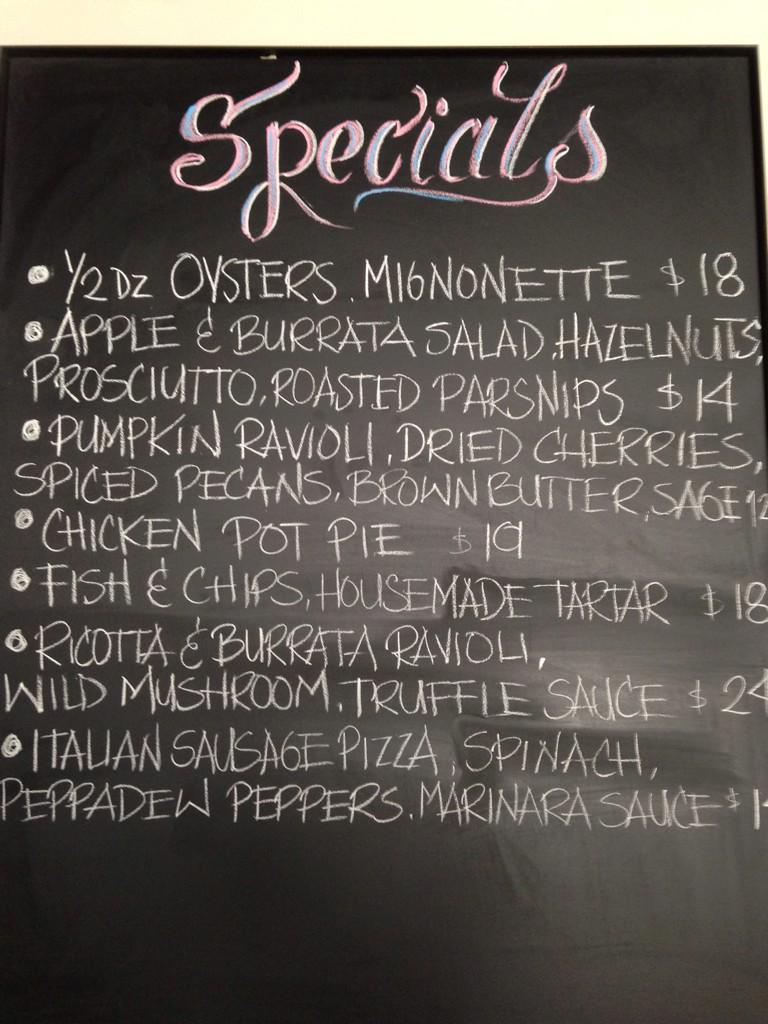 Specials
• 1/2 DZ OYSTERS. MIGNONETTE $18
• APPLE & BURRATA SALAD, HAZELNUTS,
PROSCIUTTO, ROASTED PARSNIPS $14
• PUMPKIN RAVIOLI, DRIED CHERRIES,
SPICED PECANS, BROWN BUTTER, SAGE 12
• CHICKEN POT PIE $19
• FISH & CHIPS, HOUSEMADE TARTAR $18
• RICOTTA & BURRATA RAVIOLI,
WILD MUSHROOM, TRUFFLE SAUCE $24
• ITALIAN SAUSAGE PIZZA, SPINACH,
PEPPADEW PEPPERS. MARINARA SAUCE $